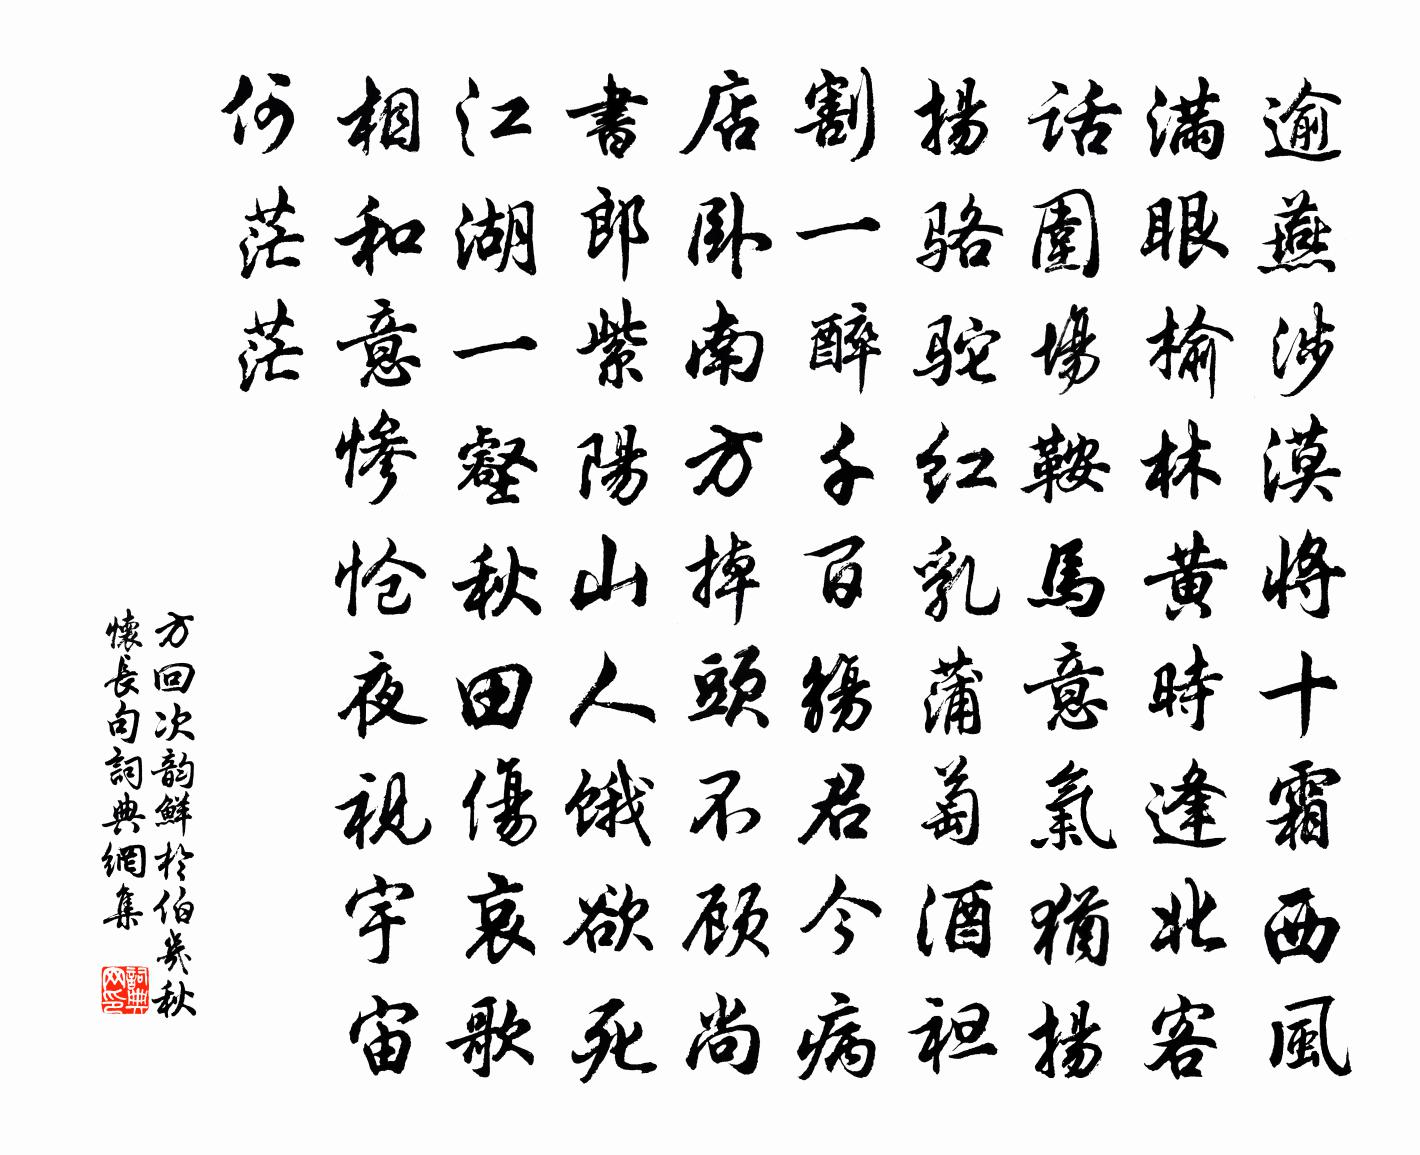 逾燕涉漠將十霜西風
滿眼榆林黃時逢北客
話圍場鞍馬意氣猶揚
揚駱駝紅乳蒲萄酒袒
割一醉千百觴君今病
店臥南方掉頭不顧尚
書郎紫陽山人餓欲死
江湖一壑秋田傷哀歌
相和意慘愴夜視宇宙
何茫茫
方回次韵鮮於伯幾秋
懷長句詞典網集
詞典网印